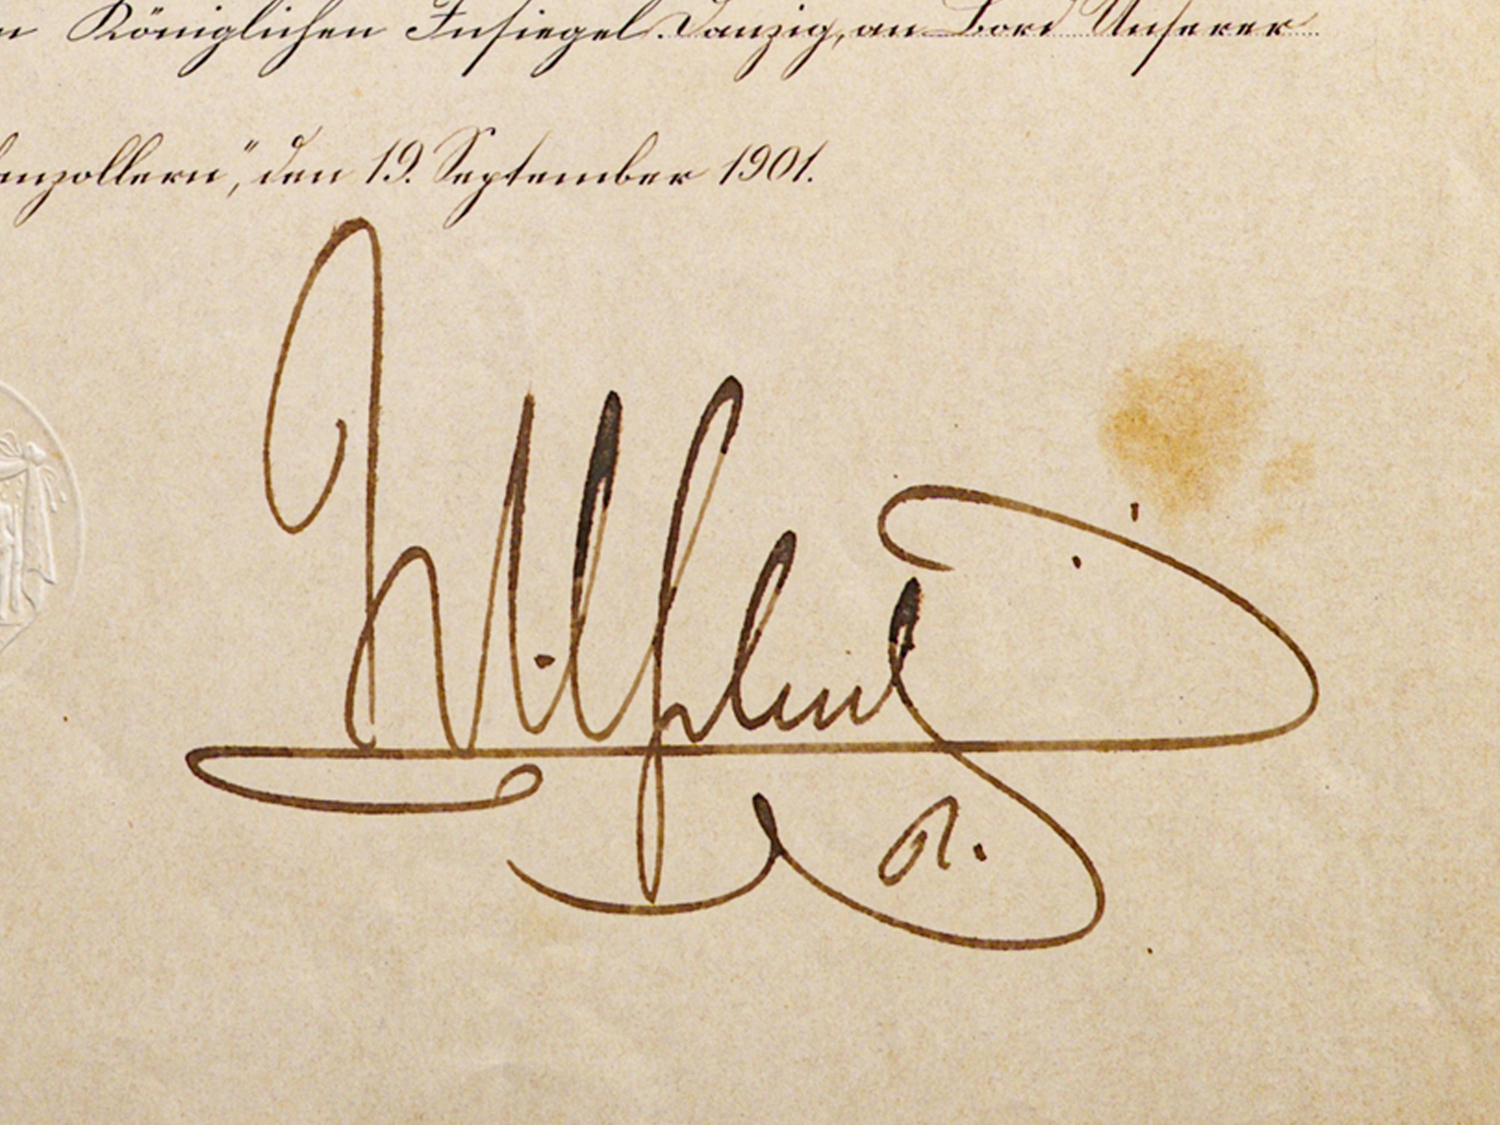 n Königlichen Insiegel. Danzig, an Bord Unserer
enzollern", den 19. September 1901.
Wilhelm
R.